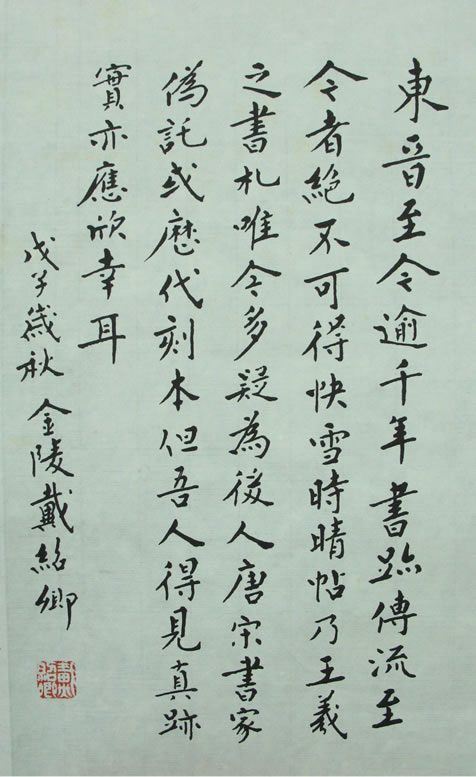 東晉至今逾千年書跡傳流至
今者絕不可得快雪時晴帖乃王羲
之書札唯今多疑為後人唐宋書家
偽託或歷代刻本但吾人得見真跡
實亦應欣幸耳
戊子歲秋 金陵戴紹卿